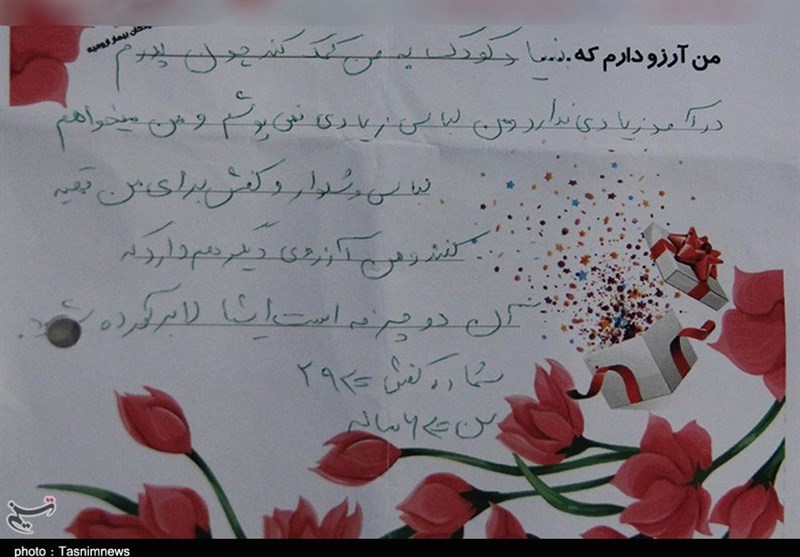 کودکان بیمار ارومیه
من آرزو دارم که.... بنیاد کودک به من کمک کند چون پدرم
درآمد زیادی ندارد و من لباس زیادی نمی پوشم و من میخواهم
لباس و شلوار و کفش برای من تهیه
کنند و من آرزوی دیگر هم دارم که
آن دوچرخه است ایشا برآورده شود.
شماره کفش => ۲۹
سن => ۶ ساله
تسنیم
photo : Tasnimnews